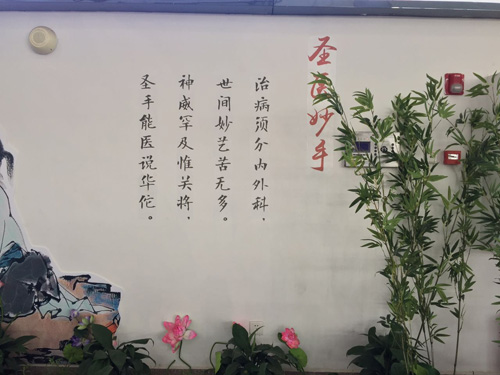 圣医妙手
治病须分内外科，
世间妙艺苦无多。
神威罕及惟关将，
圣手能医说华佗。